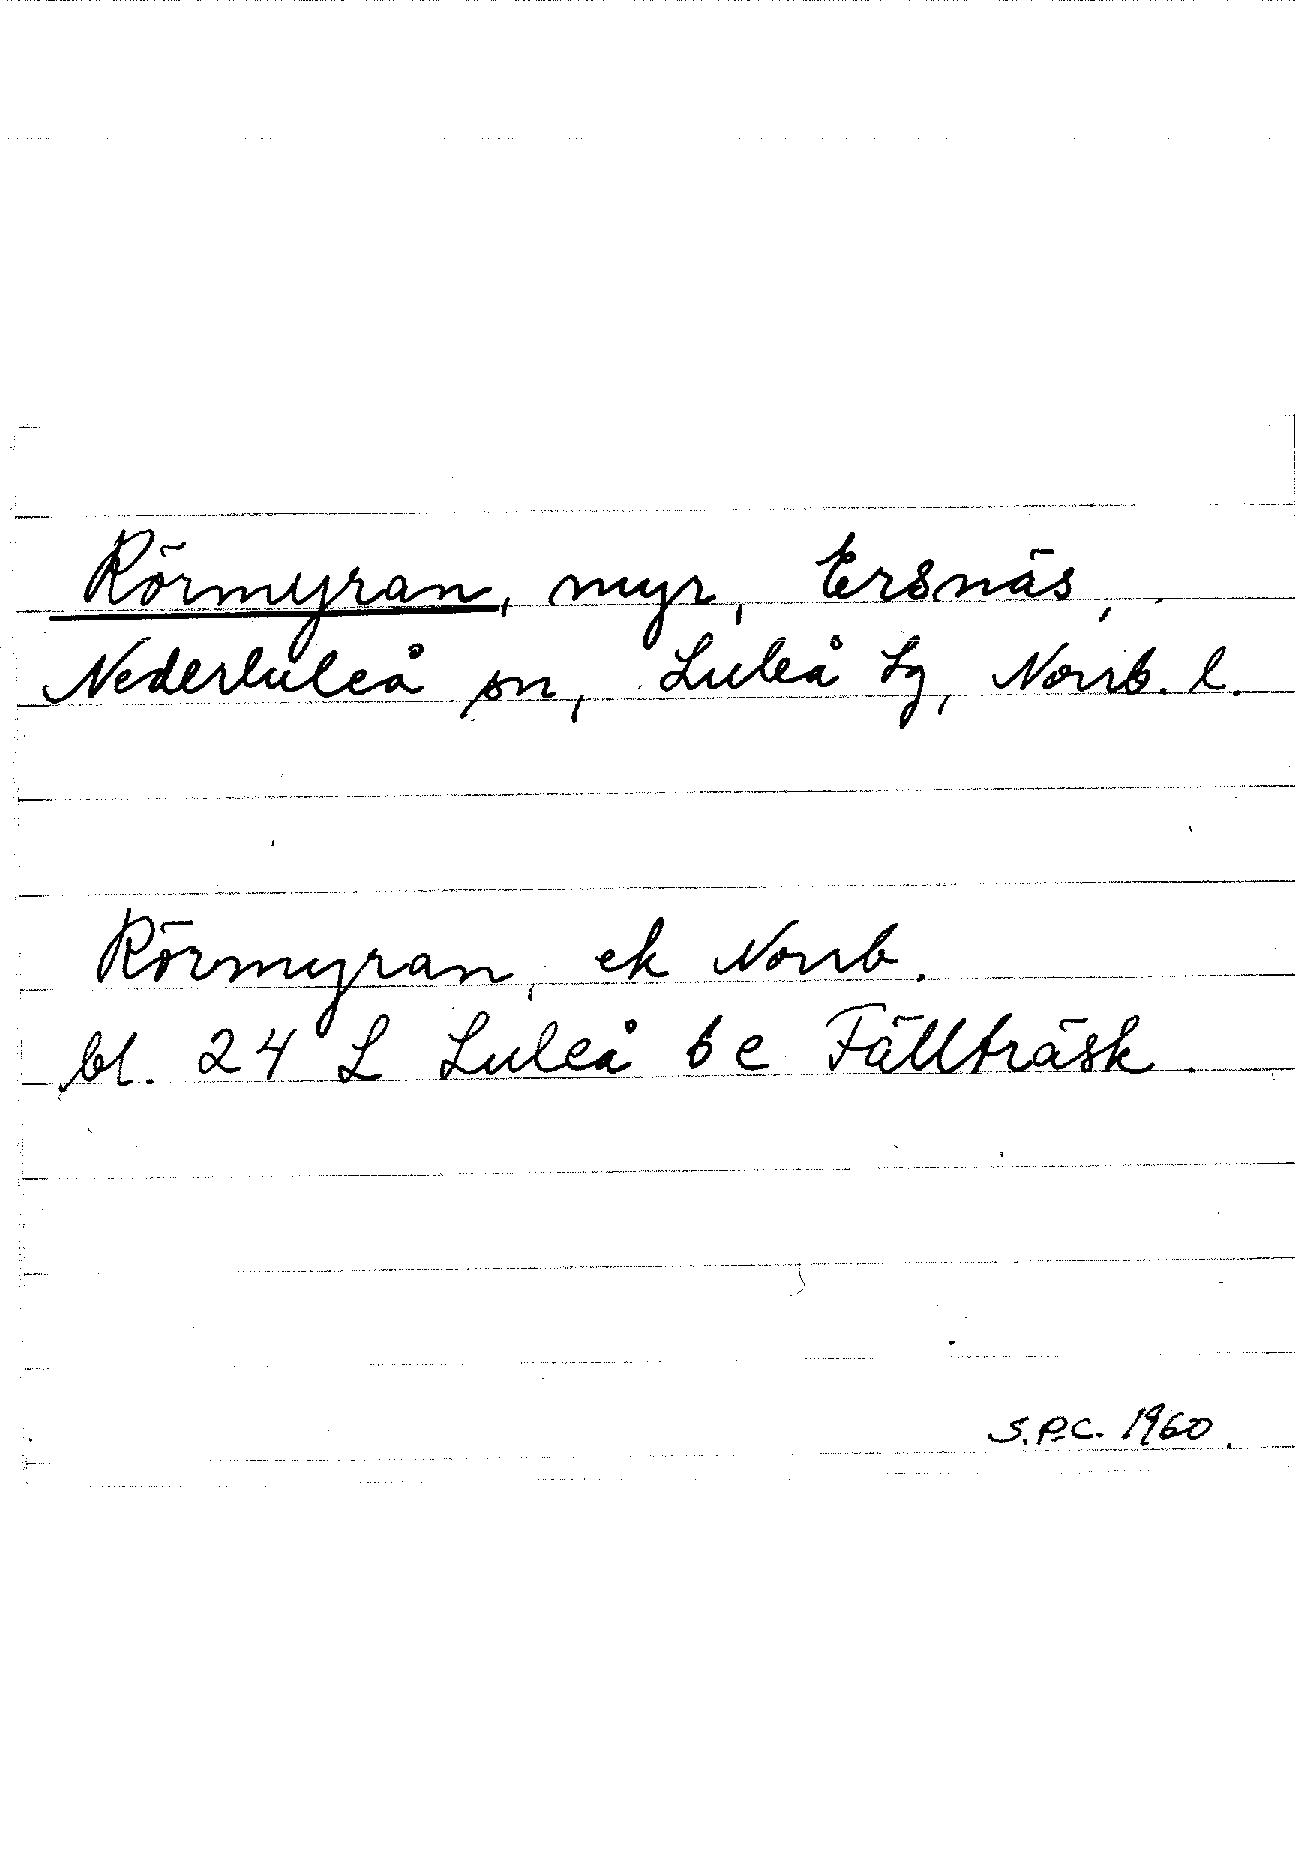 Rörmyran, myr, Ersnäs,
Nederluleå sn, Luleå tg, Norrb. l.
Rörmyran, ek Norrb.
bl. 24 L Luleå 6 e Fällträsk.
S.P.C. 1960.